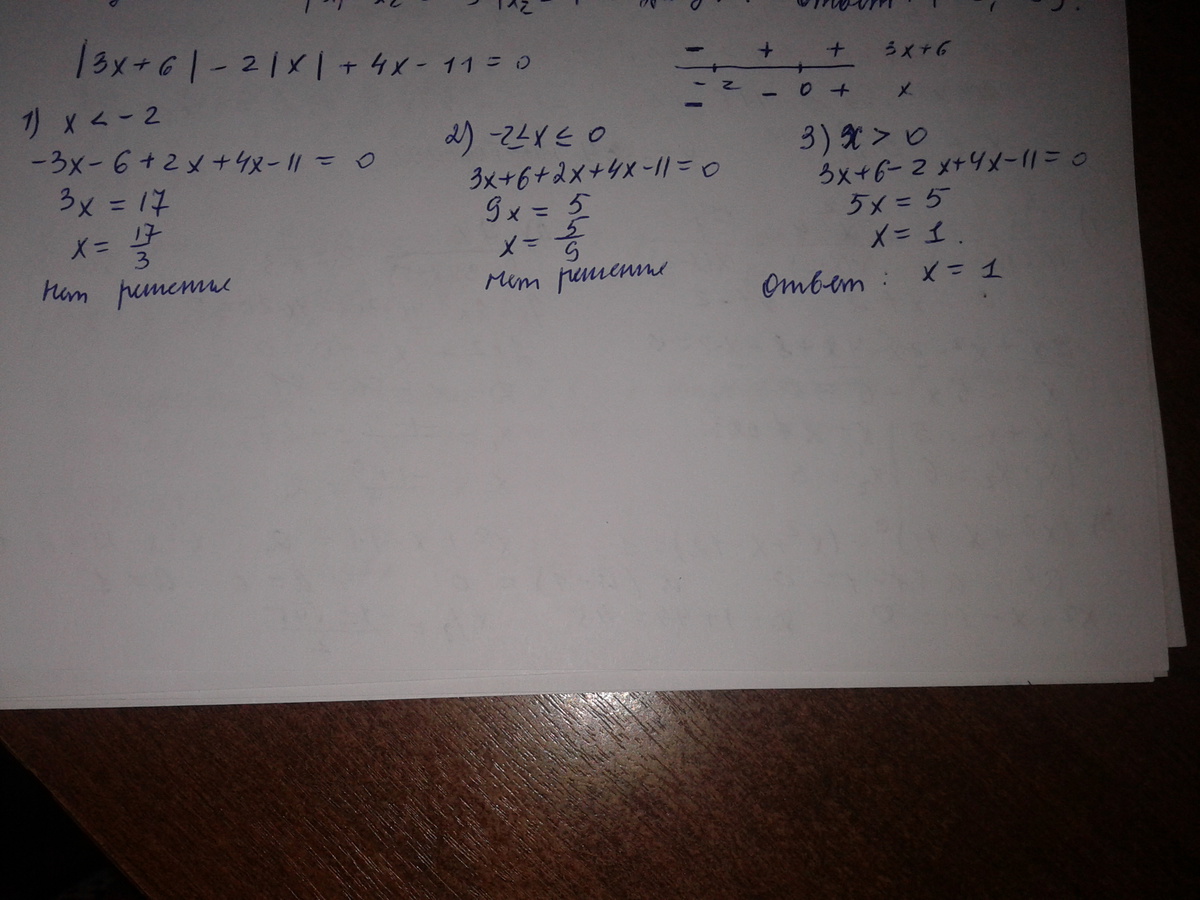 Ответ:
|3x+6|-2|x|+4x-11=0
- + + 3x+6
-2 - 0 + x
-
1) x < -2
-3x-6+2x+4x-11=0
3x=17
x=17/3
Нет решения
2) -2≤x≤0
3x+6+2x+4x-11=0
9x=5
x=5/9
Нет решения
3) x>0
3x+6-2x+4x-11=0
5x=5
x=1.
Ответ: x=1